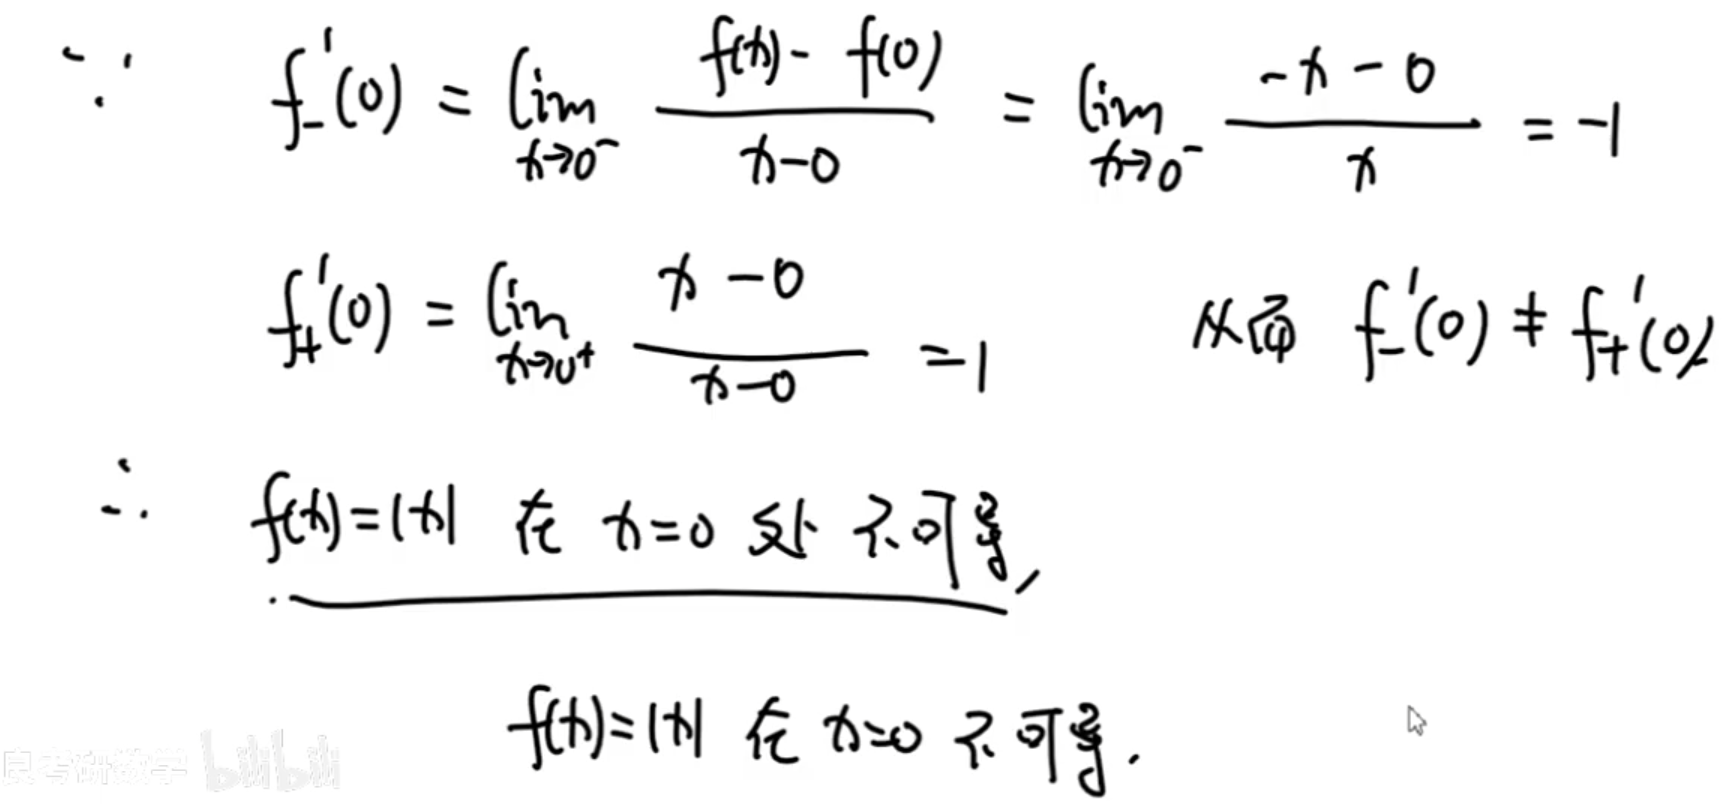 ∵ f₋′(0) = lim_{x→0⁻} (f(x) - f(0))/(x-0) = lim_{x→0⁻} (-x-0)/x = -1
f₊′(0) = lim_{x→0⁺} (x-0)/(x-0) = 1 从而 f₋′(0) ≠ f₊′(0)
∴ f(x)=|x| 在 x=0 处 不可导,
f(x)=|x| 在 x=0 不可导.
良考研数学 bilibili